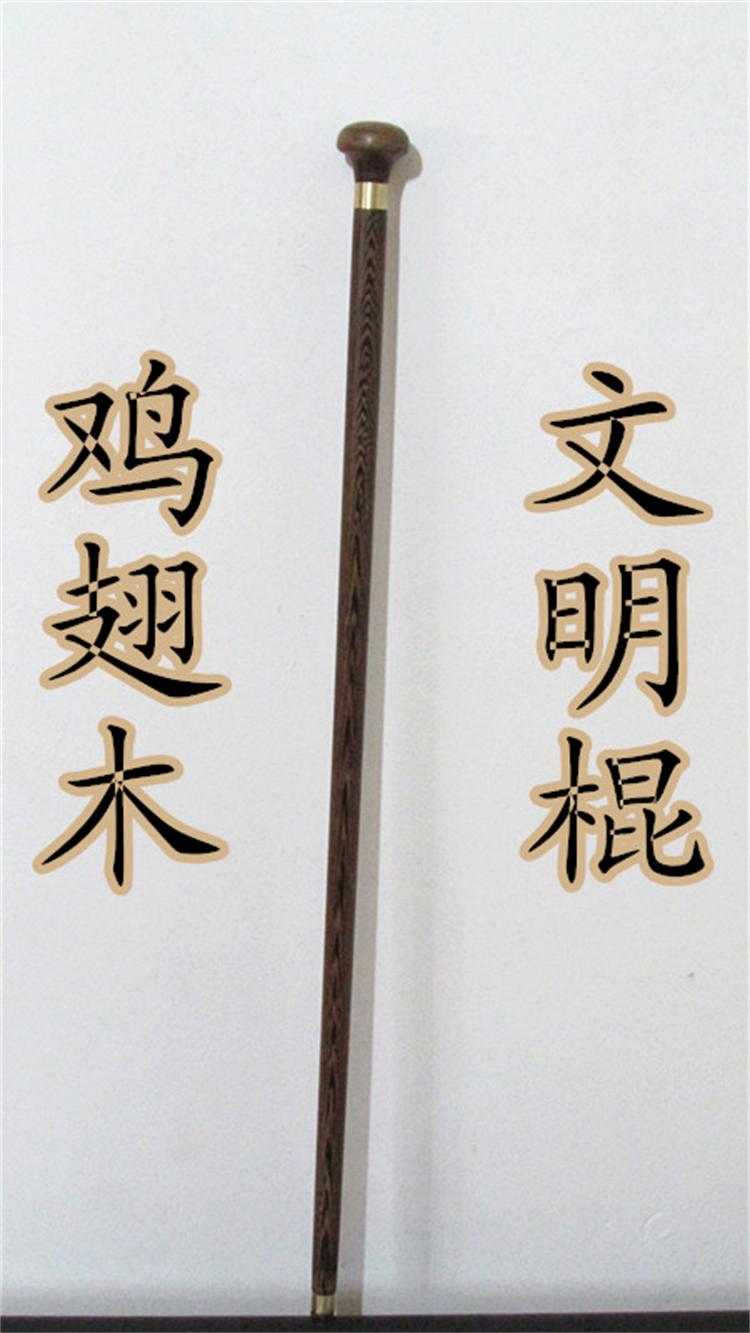 鸡翅木
文明棍